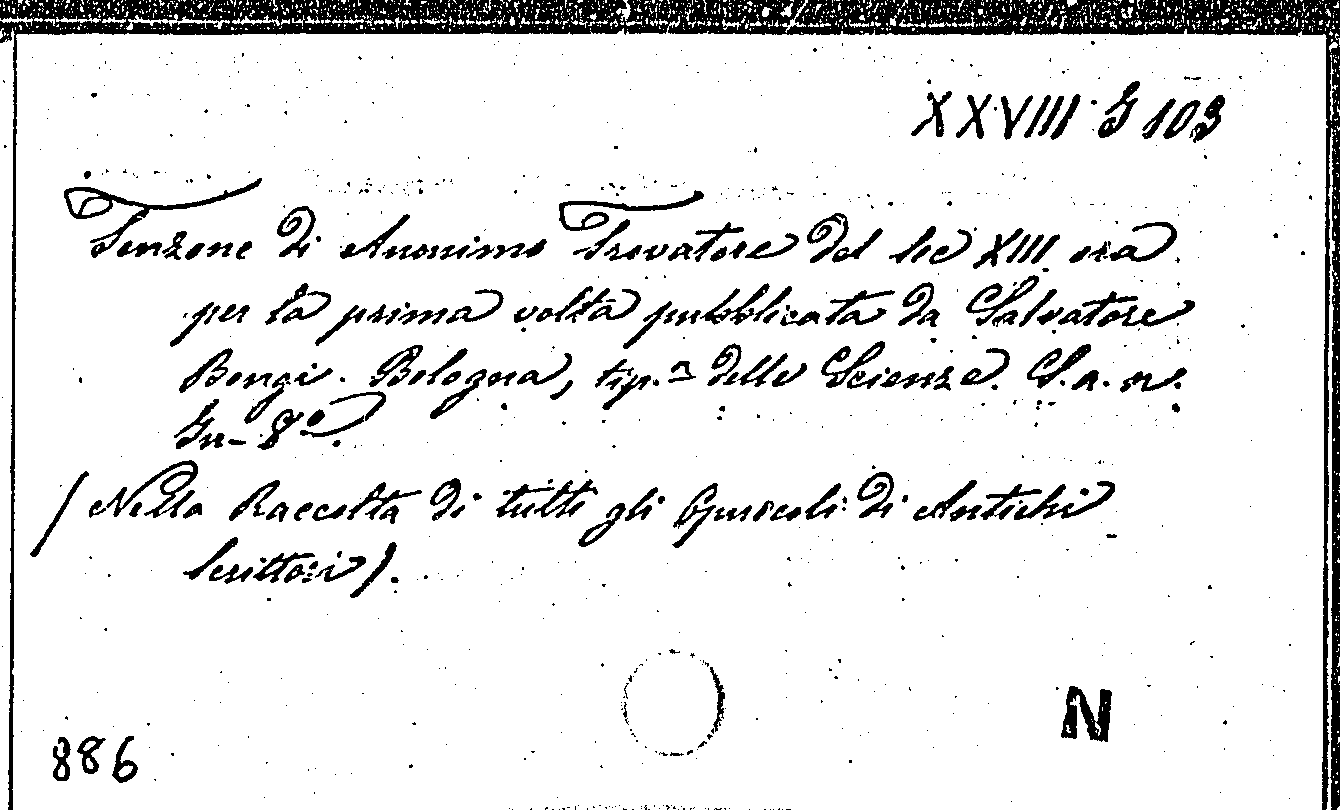 XXVIII G 103
Tenzone di Anonimo Trovatore del sec XIII ora
per la prima volta pubblicata da Salvatore
Bongi. Bologna, tip.ª delle Scienze. S. a. n.
In-8º.
(Nella Raccolta di tutti gli Opuscoli di Antichi
Scrittori).
N
886